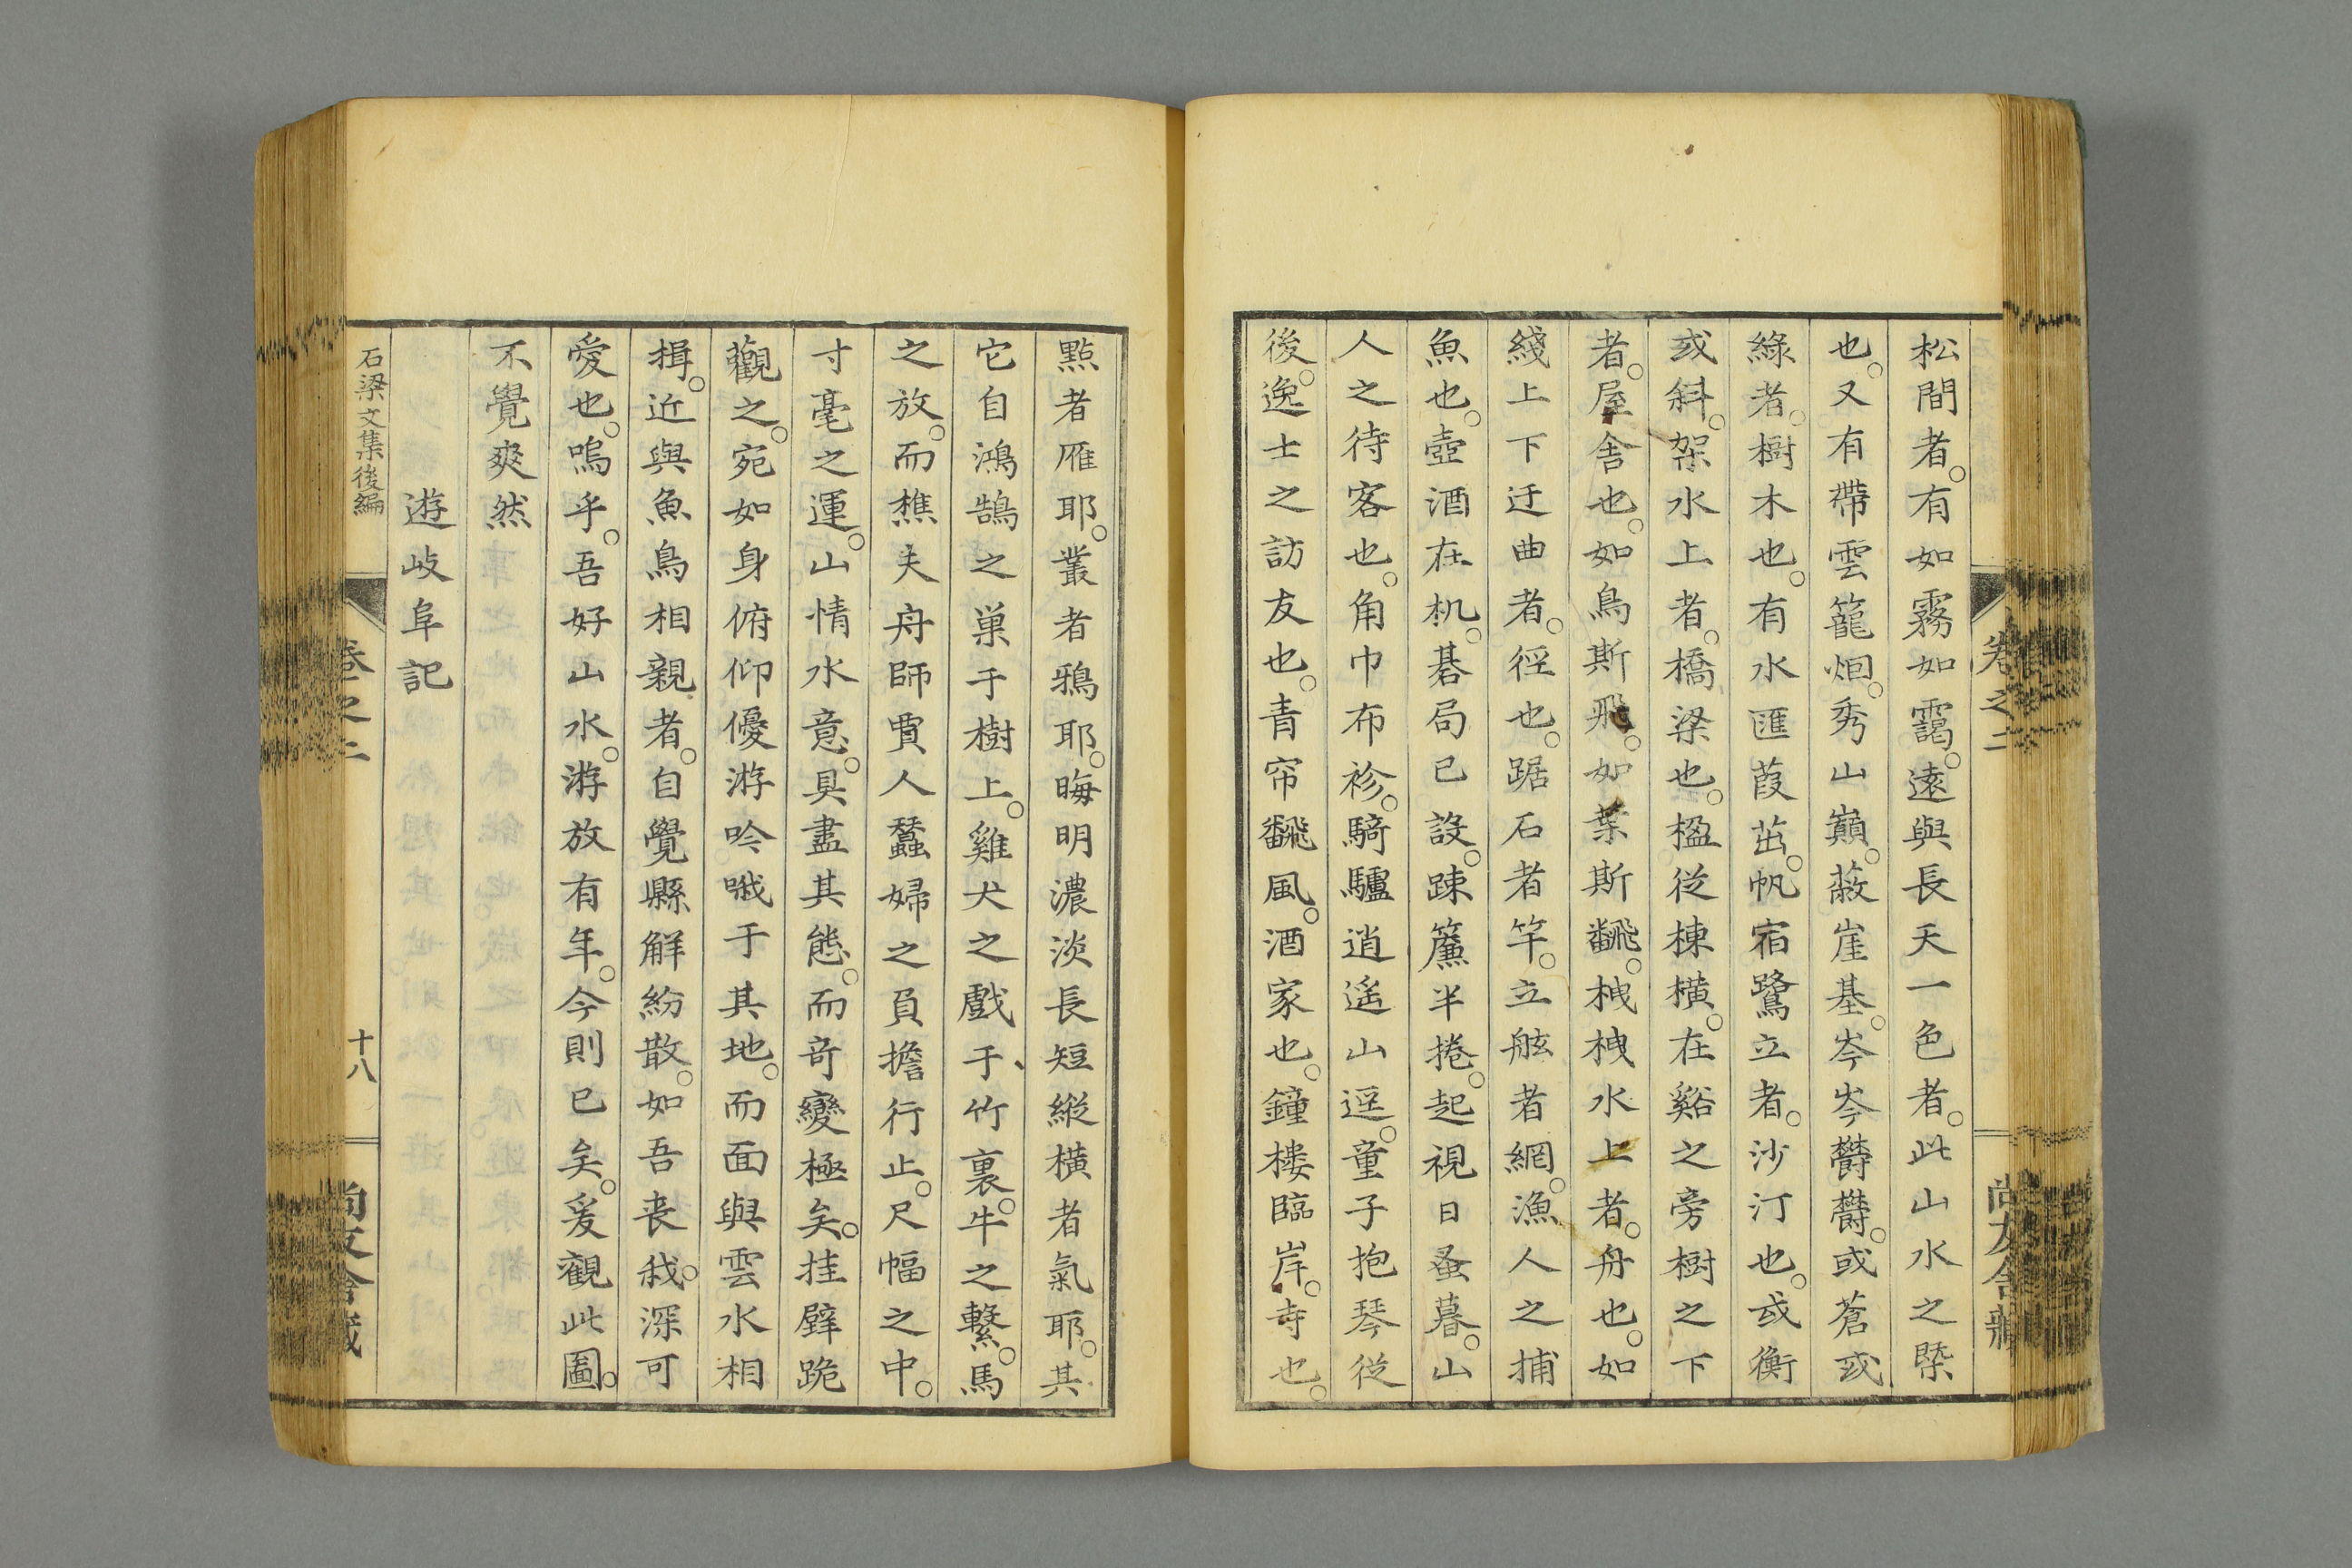 卷之二
尚友舍藏
松間者。有如霧如靄。遠與長天一色者。此山水之槩
也。又有帶雲籠烟。秀山巓。蔽崖基。岑岑欝欝。或蒼或
綠者。樹木也。有水匯葭茁。帆宿鷺立者。沙汀也。或衡
或斜。架水上者。橋梁也。楹從棟横。在谿之旁樹之下
者。屋舎也。如鳥斯飛。如葉斯飜。拽拽水上者。舟也。如
綫上下迂曲者。徑也。踞石者竿。立舷者網。漁人之捕
魚也。壺酒在机。碁局已設。踈簾半捲。起視日蚤暮。山
人之待客也。角巾布袗。騎驢逍遥山逕。童子抱琴從
後。逸士之訪友也。青帘飜風。酒家也。鐘樓臨岸。寺也。
點者雁耶。叢者鴉耶。晦明濃淡長短縱横者氣耶。其
它自鴻鵠之巣于樹上。雞犬之戲于竹裏。牛之繫。馬
之放。而樵夫舟師賈人蠶婦之負擔行止。尺幅之中。
寸毫之運。山情水意。具盡其態。而竒變極矣。挂壁跪
觀之。宛如身俯仰優游吟哦于其地。而面與雲水相
揖。近與魚鳥相親者。自覺縣解紛散。如吾丧我。深可
愛也。嗚乎。吾好山水。游放有年。今則已矣。爰觀此圖。
不覺爽然
遊岐阜記
石梁文集後編
卷之二
十八
尚友舍藏